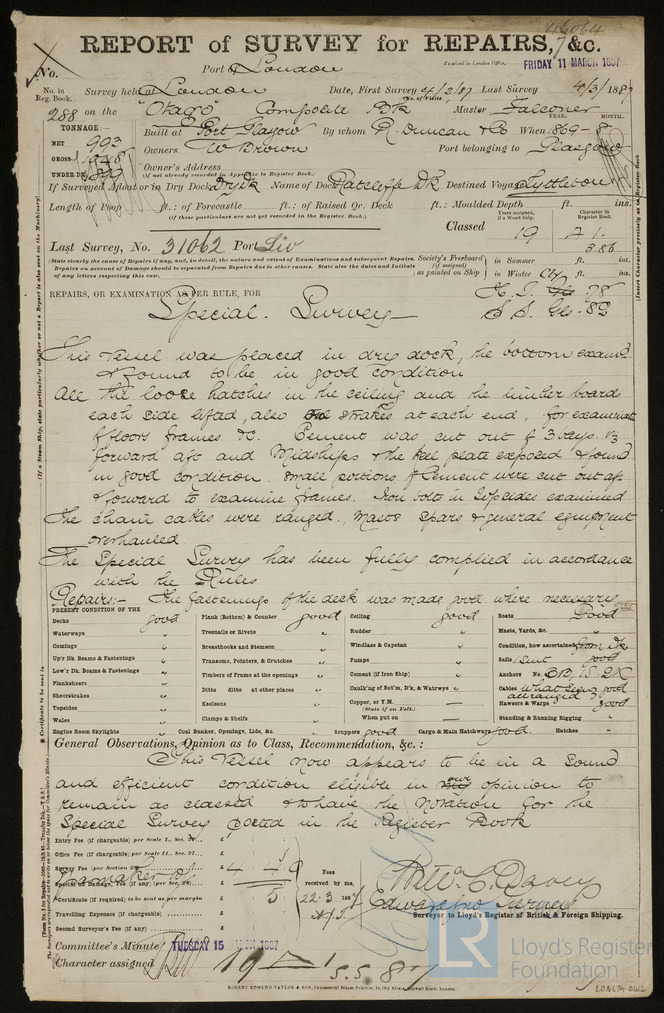 46064
REPORT of SURVEY for REPAIRS, &c.
No.
Port of London
Received in London Office,
FRIDAY 11 MARCH 1887
No. in Reg. Book.
Survey held at London
Date, First Survey 4/2/87 Last Survey 4/3/1887
288 on the "Otago" Composite Bk Master Falconer
TONNAGE:—
NET 993
GROSS
UNDER DK
Built at Port Glasgow By whom R. Duncan & Co When 1869 — 8
YEAR. MONTH.
Owners W Brown Port belonging to Glasgow
Owner's Address
(if not already recorded in Appendix to Register Book.)
If Surveyed Afloat or in Dry Dock Dry Dk Name of Dock Ratcliffe Dk Destined Voyage Lyttleton
Length of Poop ft.: of Forecastle ft.: of Raised Qr. Deck ft.: Moulded Depth ft. ins.
(if these particulars are not yet recorded in the Register Book.)
Classed
Years assigned, if a Wood Ship.
Character in Register Book.
19 A 1.
5.86
Last Survey, No. 31062 Port Liv
(State clearly the cause of Repairs if any, and, in detail, the nature and extent of Examinations and subsequent Repairs.
Repairs on account of Damage should be separated from Repairs due to other causes. State also the dates and Initials
of any letters respecting this case.
Society's Freeboard (if assigned) as painted on Ship
in Summer ft. ins.
in Winter ft. ins.
REPAIRS, OR EXAMINATION AS PER RULE, FOR
Special Survey
This Vessel was placed in dry dock, the bottom examd
& found to be in good condition
All the loose hatches in the ceiling and the limber board
each side lifted, also strakes at each end, for examinatn
of floors frames &c. Cement was cut out of 3 bays
forward aft and Midships & the keel plate exposed & found
in good condition. Small portions of Cement were cut out aft
& forward to examine frames. Iron bolts in Topsides examined
The chain cables were ranged, Masts Spars & general equipment
overhauled
The Special Survey has been fully complied in accordance
with the Rules
Repairs:— The fastenings of the deck was made good where necessary
PRESENT CONDITION OF THE
Decks good
Waterways "
Comings "
Up'r Dk. Beams & Fastenings "
Low'r Dk. Beams & Fastenings "
Planksheers "
Sheerstrakes "
Topsides "
Wales "
Engine Room Skylights
Plank (Bottom) & Counter good
Treenails or Rivets "
Breasthooks and Stemson "
Transoms, Pointers, & Crutches "
Timbers of Frame at the openings "
Ditto ditto at other places "
Keelsons "
Clamps & Shelfs "
Coal Bunker, Openings, Lids, &c.
Ceiling good
Rudder "
Windlass & Capstan "
Pumps "
Cement (if Iron Ship) "
Caulk'ng of Bot'm, D'k, & Watrw'ys "
Copper, or Y.M.
(State if on Felt.)
When put on
Scuppers good Cargo & Main Hatchways good
Boats Good
Masts, Yards, &c. "
Condition, how ascertained from Dk
Sails good
Anchors No. 3B, 1S, 2K
Cables good
Hawsers & Warps good
Standing & Running Rigging "
Hatches "
General Observations, Opinion as to Class, Recommendation, &c.:
This Vessel now appears to be in a sound
and efficient condition eligible in our opinion to
remain as classed & to have the notation for the
Special Survey posted in the Register Book
Entry Fee (if chargeable) per Scale I., Sec.
Office Fee (if chargeable) per Scale II., Sec. 27
Survey Fee (per Section 28) £ 4 4 0
Special or Damage Fee (if any) (per Sec. 28)
Certificate (if required) to be sent as per margin 5
Travelling Expenses (if chargeable) £
Second Surveyor's Fee (if any) £
Fees received by me, 22.3 1887
Wm C. Davey
Surveyor to Lloyd's Register of British & Foreign Shipping.
Committee's Minute TUESDAY 15 MARCH 1887
Character assigned 19 A 1
S.S. 87
ROBERT EDMUND TAYLOR & SON,
LR Lloyd's Register Foundation